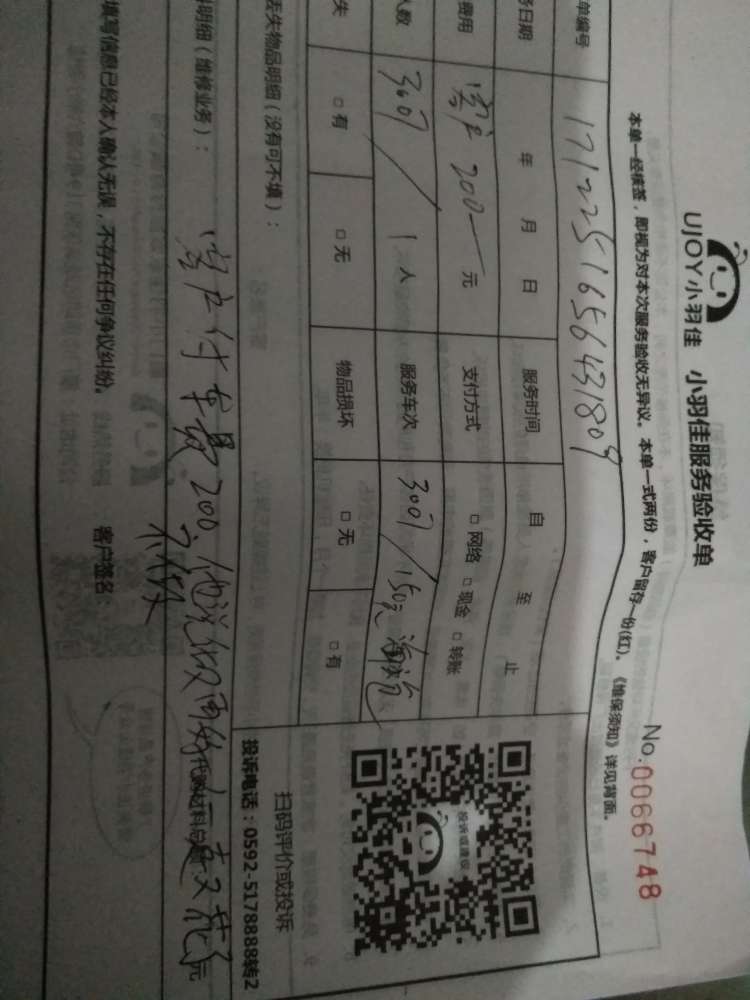 UJOY小羽佳 小羽佳服务验收单
No.0066748
本单一经核签，即视为对本次服务验收无异议。本单一式两份，客户留存一份(红)。《维保须知》详见背面。
单编号 1712251656431809
务日期 年 月 日 服务时间 自 至 止
费用 客户200一元 支付方式 □网络 □现金 □转账
人数 300 1人 服务车次 300/150元
失 □有 □无 物品损坏 □无 □有
丢失物品明细（没有可不填）：
料明细（维修业务）：
客户付 200、他说收 代购材料总额 元
填写信息已经本人确认无误，不存在任何争议纠纷。 客户签名：
投诉或建议
扫码评价或投诉
投诉电话：0592-5178888转2